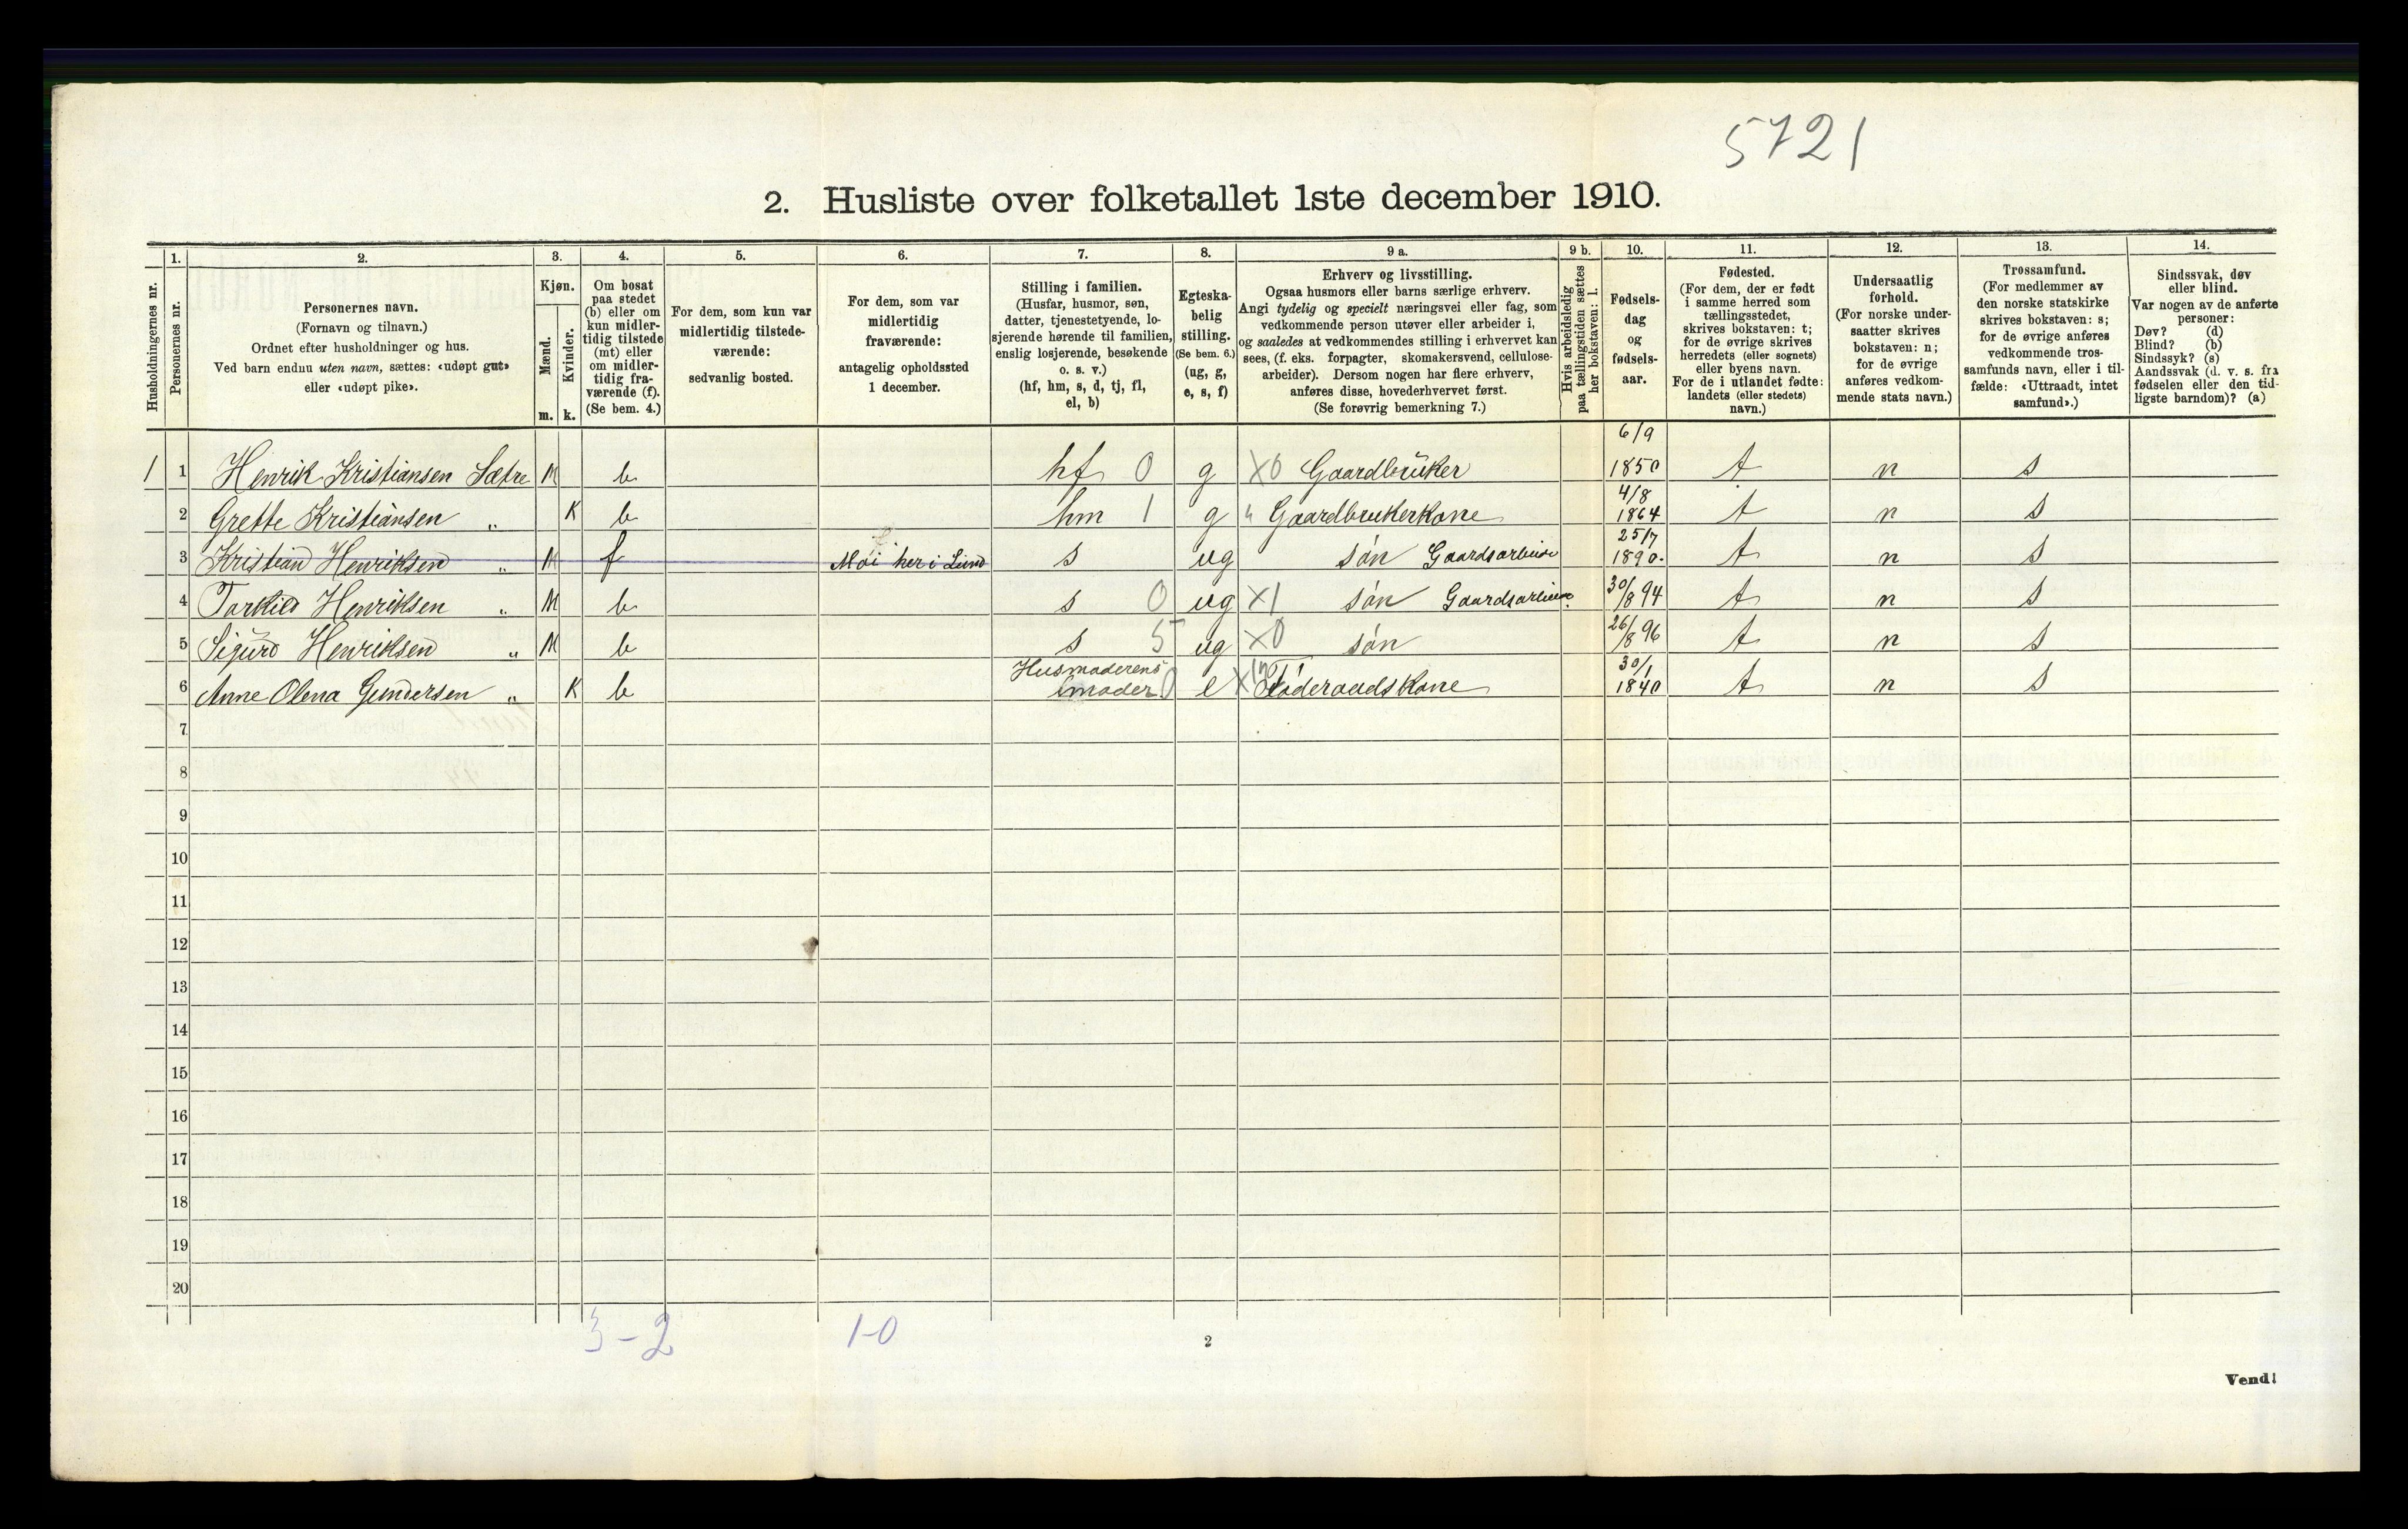 5721
2. Husliste over folketallet 1ste december 1910.
Husholdningernes nr.
1.
Personernes nr.
2.
Personernes navn.
(Fornavn og tilnavn.)
Ordnet efter husholdninger og hus.
Ved barn endnu uten navn, sættes: «udøpt gut»
eller «udøpt pike».
3.
Kjøn.
Mænd.
m.
Kvinder.
k.
4.
Om bosat
paa stedet
(b) eller om
kun midler-
tidig tilstede
(mt) eller
om midler-
tidig fra-
værende (f).
(Se bem. 4.)
5.
For dem, som kun var
midlertidig tilstede-
værende:
sedvanlig bosted.
6.
For dem, som var
midlertidig
fraværende:
antagelig opholdssted
1 december.
7.
Stilling i familien.
(Husfar, husmor, søn,
datter, tjenestetyende, lo-
sjerende hørende til familien,
enslig losjerende, besøkende
o. s. v.)
(hf, hm, s, d, tj, fl,
el, b)
8.
Egteska-
belig
stilling.
(Se bem. 6.)
(ug, g,
e, s, f)
9 a.
Erhverv og livsstilling.
Ogsaa husmors eller barns særlige erhverv.
Angi tydelig og specielt næringsvei eller fag, som
vedkommende person utøver eller arbeider i,
og saaledes at vedkommendes stilling i erhvervet kan
sees, (f. eks. forpagter, skomakersvend, cellulose-
arbeider). Dersom nogen har flere erhverv,
anføres disse, hovederhvervet først.
(Se forøvrig bemerkning 7.)
9 b.
Hvis arbeidsledig
paa tællingstiden sættes
her bokstaven: l.
10.
Fødsels-
dag
og
fødsels-
aar.
11.
Fødested.
(For dem, der er født
i samme herred som
tællingsstedet,
skrives bokstaven: t;
for de øvrige skrives
herredets (eller sognets)
eller byens navn.
For de i utlandet fødte:
landets (eller stedets)
navn.)
12.
Undersaatlig
forhold.
(For norske under-
saatter skrives
bokstaven: n;
for de øvrige
anføres vedkom-
mende stats navn.)
13.
Trossamfund.
(For medlemmer av
den norske statskirke
skrives bokstaven: s;
for de øvrige anføres
vedkommende tros-
samfunds navn, eller i til-
fælde: «Uttraadt, intet
samfund».)
14.
Sindssvak, døv
eller blind.
Var nogen av de anførte
personer:
Døv? (d)
Blind? (b)
Sindssyk? (s)
Aandssvak (d. v. s. fra
fødselen eller den tid-
ligste barndom)? (a)
1 1 Henrik Kristiansen Sætre M b hf 0 g X0 Gaardbruker 6/9 1850 t n s
2 Grette Kristiansen " K b hm 1 g " Gaardbrukerkone 4/8 1864 t n s
3 Kristian Henriksen " M f Moi her i Lund s ug søn Gaardsarbeide 25/7 1890. t n s
4 Torkild Henriksen " M b s 0 ug X1 søn Gaardsarbeide 30/8 94 t n s
5 Sigurd Henriksen " M b s 5 ug X0 søn 26/8 96 t n s
6 Anne Olena Gundersen " K b Husmoderens moder 0 e X Føderaadskone 30/1 1840 t n s
7
8
9
10
11
12
13
14
15
16
17
18
19
20
3-2 1-0
2
Vend!